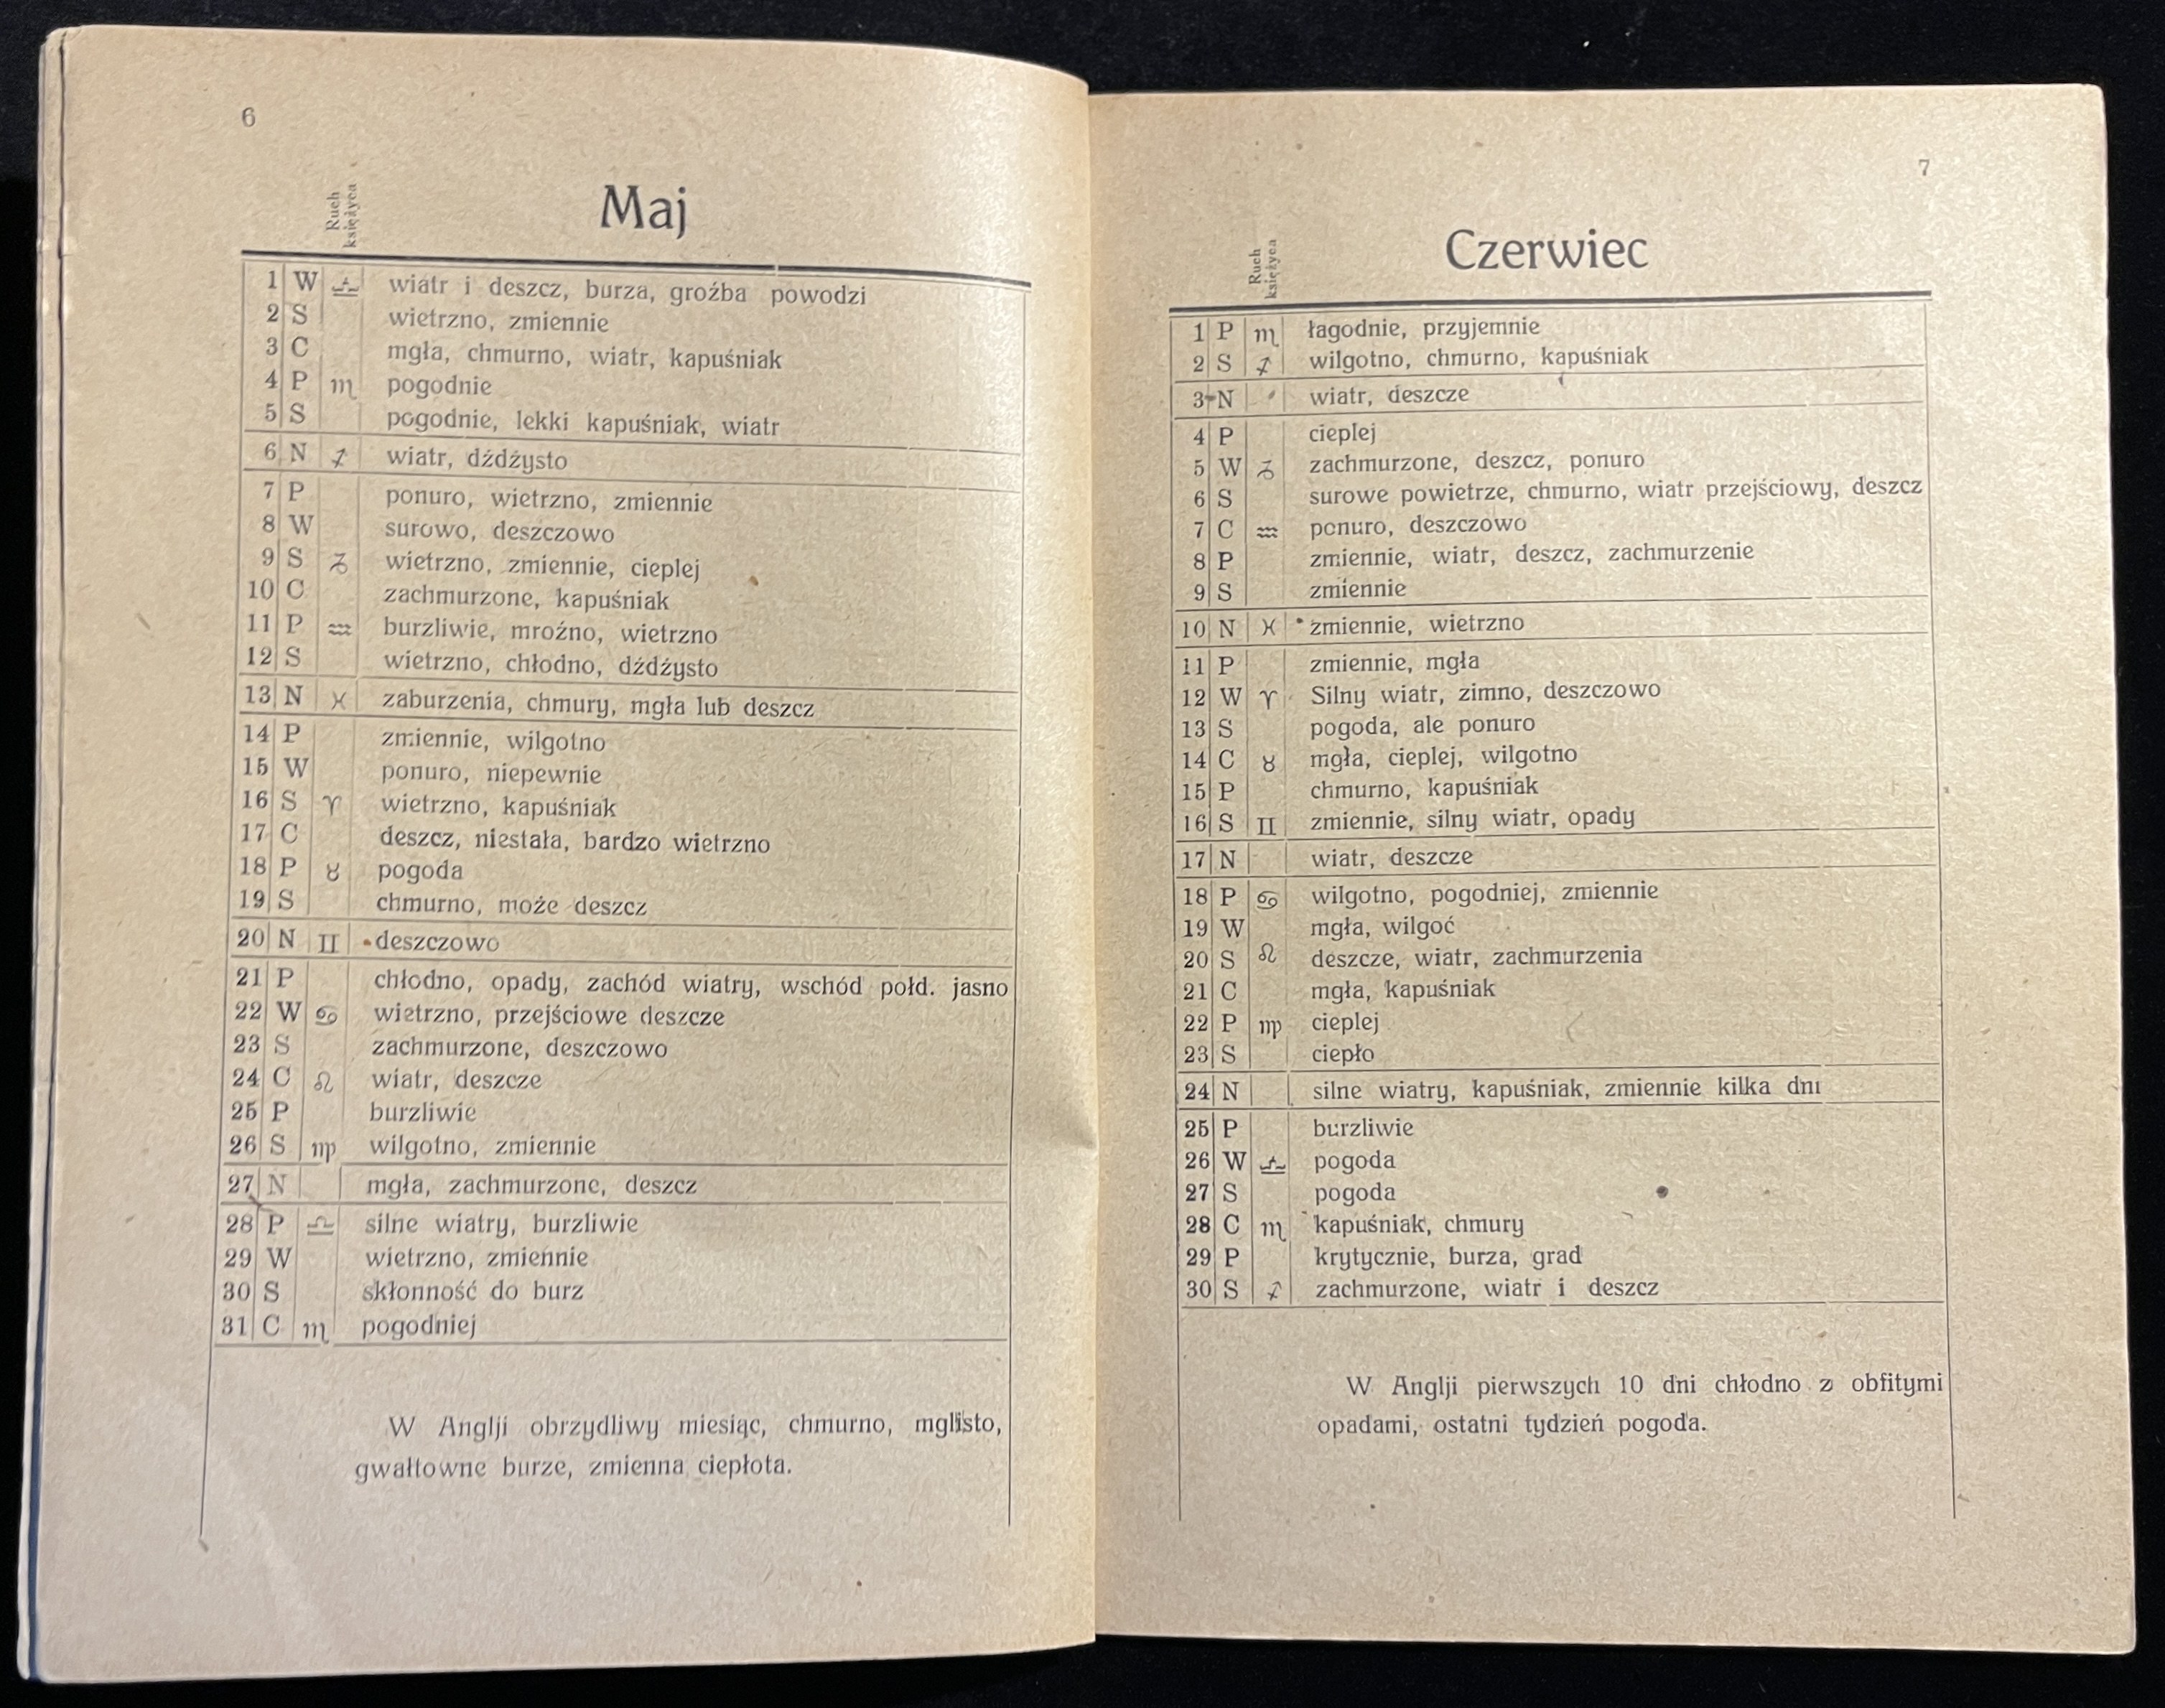 6
Ruch
księżyca
Maj
1 W ♎ wiatr i deszcz, burza, groźba powodzi
2 S wietrzno, zmiennie
3 C mgła, chmurno, wiatr, kapuśniak
4 P ♏ pogodnie
5 S pogodnie, lekki kapuśniak, wiatr
6 N ♐ wiatr, dżdżysto
7 P ponuro, wietrzno, zmiennie
8 W surowo, deszczowo
9 S ♑ wietrzno, zmiennie, cieplej
10 C zachmurzone, kapuśniak
11 P ♒ burzliwie, mroźno, wietrzno
12 S wietrzno, chłodno, dżdżysto
13 N ♓ zaburzenia, chmury, mgła lub deszcz
14 P zmiennie, wilgotno
15 W ponuro, niepewnie
16 S ♈ wietrzno, kapuśniak
17 C deszcz, niestała, bardzo wietrzno
18 P ♉ pogoda
19 S chmurno, może deszcz
20 N ♊ deszczowo
21 P chłodno, opady, zachód wiatry, wschód połd. jasno
22 W ♋ wietrzno, przejściowe deszcze
23 S zachmurzone, deszczowo
24 C ♌ wiatr, deszcze
25 P burzliwie
26 S ♍ wilgotno, zmiennie
27 N mgła, zachmurzone, deszcz
28 P ♎ silne wiatry, burzliwie
29 W wietrzno, zmiennie
30 S skłonność do burz
31 C ♏ pogodniej
W Anglji obrzydliwy miesiąc, chmurno, mglisto,
gwałtowne burze, zmienna ciepłota.
7
Ruch
księżyca
Czerwiec
1 P ♏ łagodnie, przyjemnie
2 S ♐ wilgotno, chmurno, kapuśniak
3 N wiatr, deszcze
4 P cieplej
5 W ♑ zachmurzone, deszcz, ponuro
6 S surowe powietrze, chmurno, wiatr przejściowy, deszcz
7 C ♒ ponuro, deszczowo
8 P zmiennie, wiatr, deszcz, zachmurzenie
9 S zmiennie
10 N ♓ zmiennie, wietrzno
11 P zmiennie, mgła
12 W ♈ Silny wiatr, zimno, deszczowo
13 S pogoda, ale ponuro
14 C ♉ mgła, cieplej, wilgotno
15 P chmurno, kapuśniak
16 S ♊ zmiennie, silny wiatr, opady
17 N wiatr, deszcze
18 P ♋ wilgotno, pogodniej, zmiennie
19 W mgła, wilgoć
20 S ♌ deszcze, wiatr, zachmurzenia
21 C mgła, kapuśniak
22 P ♍ cieplej
23 S ciepło
24 N silne wiatry, kapuśniak, zmiennie kilka dni
25 P burzliwie
26 W ♎ pogoda
27 S pogoda
28 C ♏ kapuśniak, chmury
29 P krytycznie, burza, grad
30 S ♐ zachmurzone, wiatr i deszcz
W Anglji pierwszych 10 dni chłodno z obfitymi
opadami, ostatni tydzień pogoda.